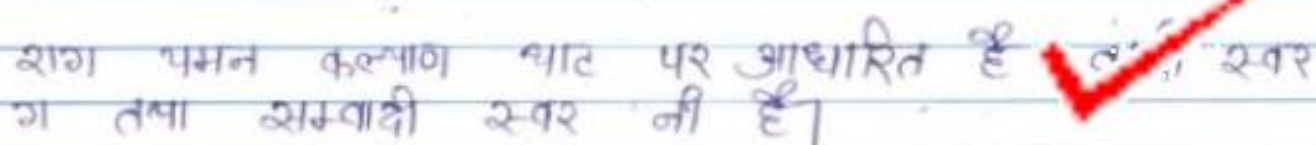 राग यमन कल्याण थाट पर आधारित है स्वर
ग तथा सम्वादी स्वर नी है।